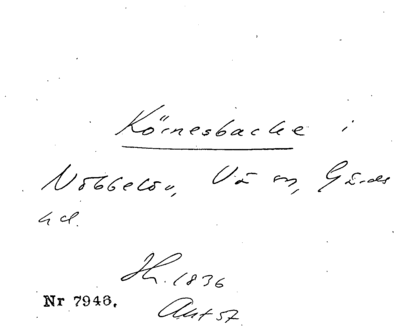 Körnesbacke i
Nöbbelöv, Vä sn, Gärds
hd.
Jh. 1836
Akt 57
Nr 7946.